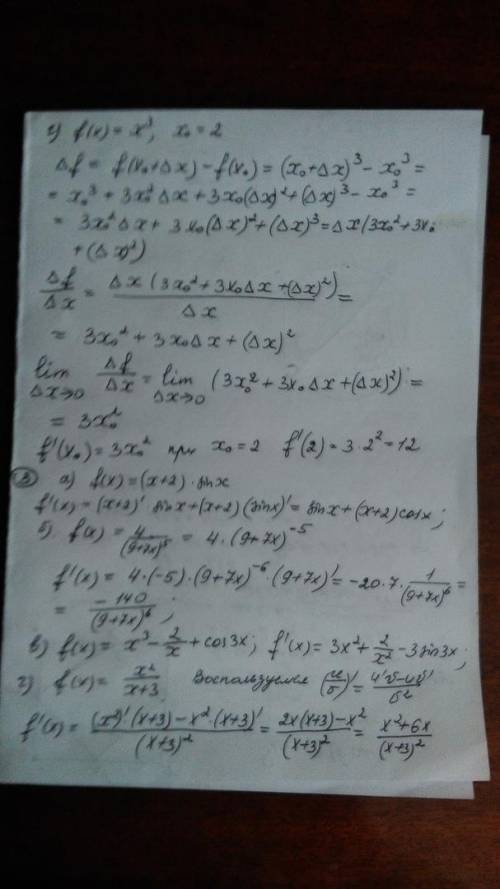 г) f(x) = x³, x₀ = 2
Δf = f(x₀+Δx) – f(x₀) = (x₀+Δx)³ – x₀³ =
= x₀³ + 3x₀²Δx + 3x₀(Δx)² + (Δx)³ – x₀³ =
= 3x₀²Δx + 3x₀(Δx)² + (Δx)³ = Δx(3x₀² + 3x₀
+ (Δx)²)
Δf/Δx = Δx (3x₀² + 3x₀Δx + (Δx)²)/Δx =
= 3x₀² + 3x₀Δx + (Δx)²
lim Δx→0 Δf/Δx = lim Δx→0 (3x₀² + 3x₀Δx + (Δx)²) =
= 3x₀²
f'(x₀) = 3x₀² при x₀ = 2 f'(2) = 3·2² = 12
③ а) f(x) = (x+2)·sinx
f'(x) = (x+2)' sinx + (x+2)(sinx)' = sinx + (x+2)cosx;
б). f(x) = 4/(9+7x)⁵ = 4·(9+7x)⁻⁵
f'(x) = 4·(-5)·(9+7x)⁻⁶·(9+7x)' = -20·7·1/(9+7x)⁶ =
= -140/(9+7x)⁶;
в) f(x) = x³ – 2/x + cos3x; f'(x) = 3x² + 2/x² – 3sin3x;
г) f(x) = x²/(x+3) Воспользуемся (u/v)' = (u'v–uv')/v²
f'(x) = ((x²)'(x+3) – x²·(x+3)')/(x+3)² = (2x(x+3) – x²)/(x+3)² = (x²+6x)/(x+3)²